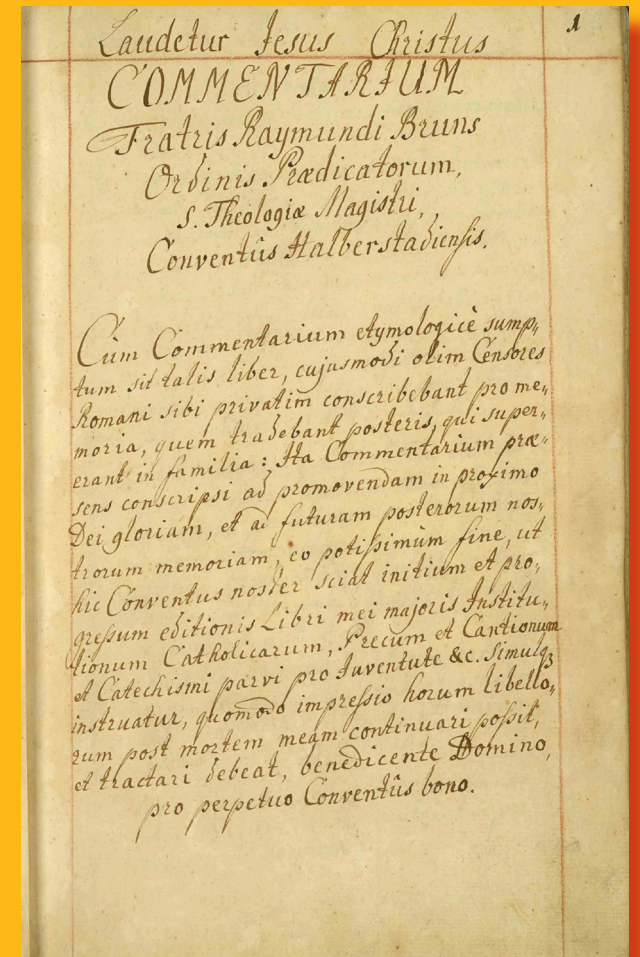 1
Laudetur Jesus Christus
COMMENTARIUM
Fratris Raymundi Bruns
Ordinis Prædicatorum,
S. Theologiæ Magistri,
Conventûs Halberstadiensis.
Cùm Commentarium etymologicè sump„
tum sit talis liber, cujusmodi olim Censores
Romani sibi privatim conscribebant pro me„
moria, quem tradebant posteris, qui super„
erant in familia: Ita Commentarium præ„
sens conscripsi ad promovendam in proximo
Dei gloriam, et ad futuram posterorum nos„
trorum memoriam, eo potissimùm fine, ut
hic Conventus noster sciat initium et pro„
gressum editionis Libri mei majoris Institu„
tionum Catholicarum, Precum et Cantionum
et Catechismi parvi pro Juventute &c. Simulqꝫ
instruatur, quomodo impressio horum libello„
rum post mortem meam continuari possit,
et tractari debeat, benedicente Domino,
pro perpetuo Conventûs bono.